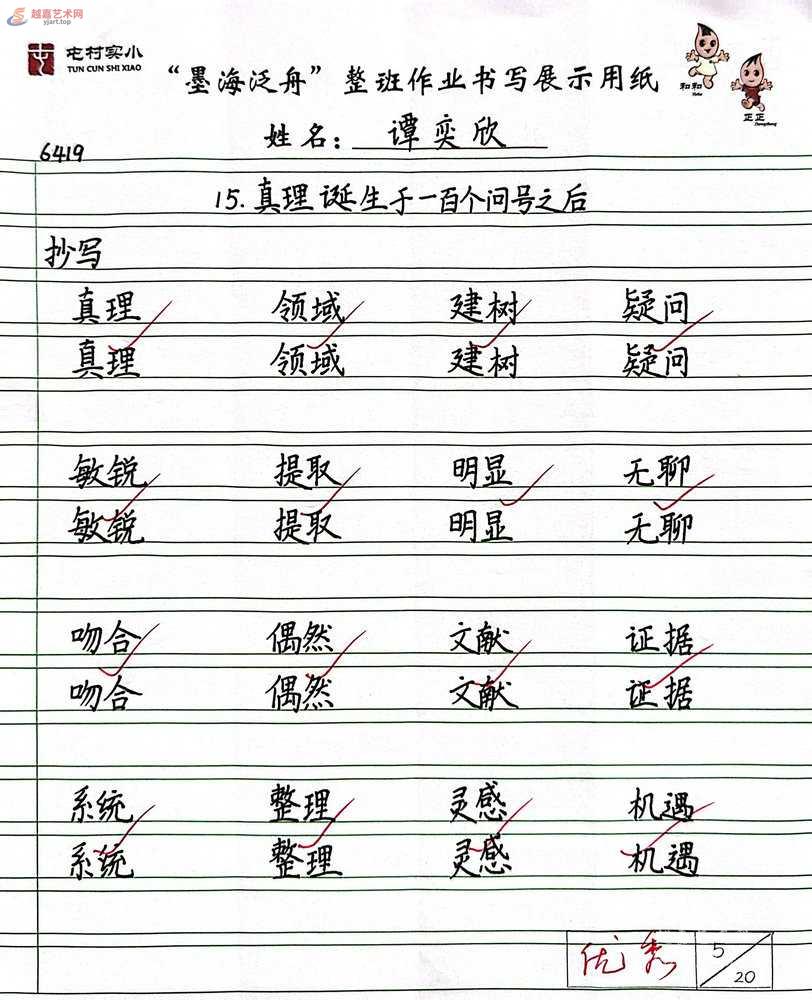 越嘉艺术网
yjart.top
屯村实小
TUN CUN SHI XIAO
“墨海泛舟”整班作业书写展示用纸
和和
Hehe
正正
Zhengzheng
姓名：谭奕欣
6419
15.真理诞生于一百个问号之后
抄写
真理 领域 建树 疑问
真理 领域 建树 疑问
敏锐 提取 明显 无聊
敏锐 提取 明显 无聊
吻合 偶然 文献 证据
吻合 偶然 文献 证据
系统 整理 灵感 机遇
系统 整理 灵感 机遇
优秀 5/20